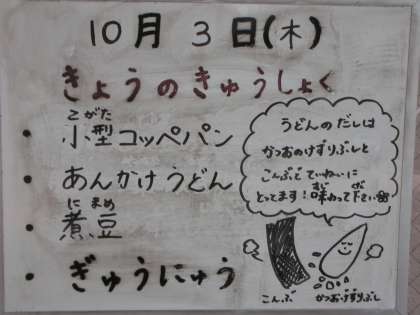 10月 3日(木)
きょうのきゅうしょく
こがた
・小型コッペパン
・あんかけうどん
に まめ
・煮豆
・ぎゅうにゅう
うどんのだしは
かつおのけずりぶしと
こんぶで ていねいに
とってます!味わって下さい
こんぶ
かつおけずりぶし